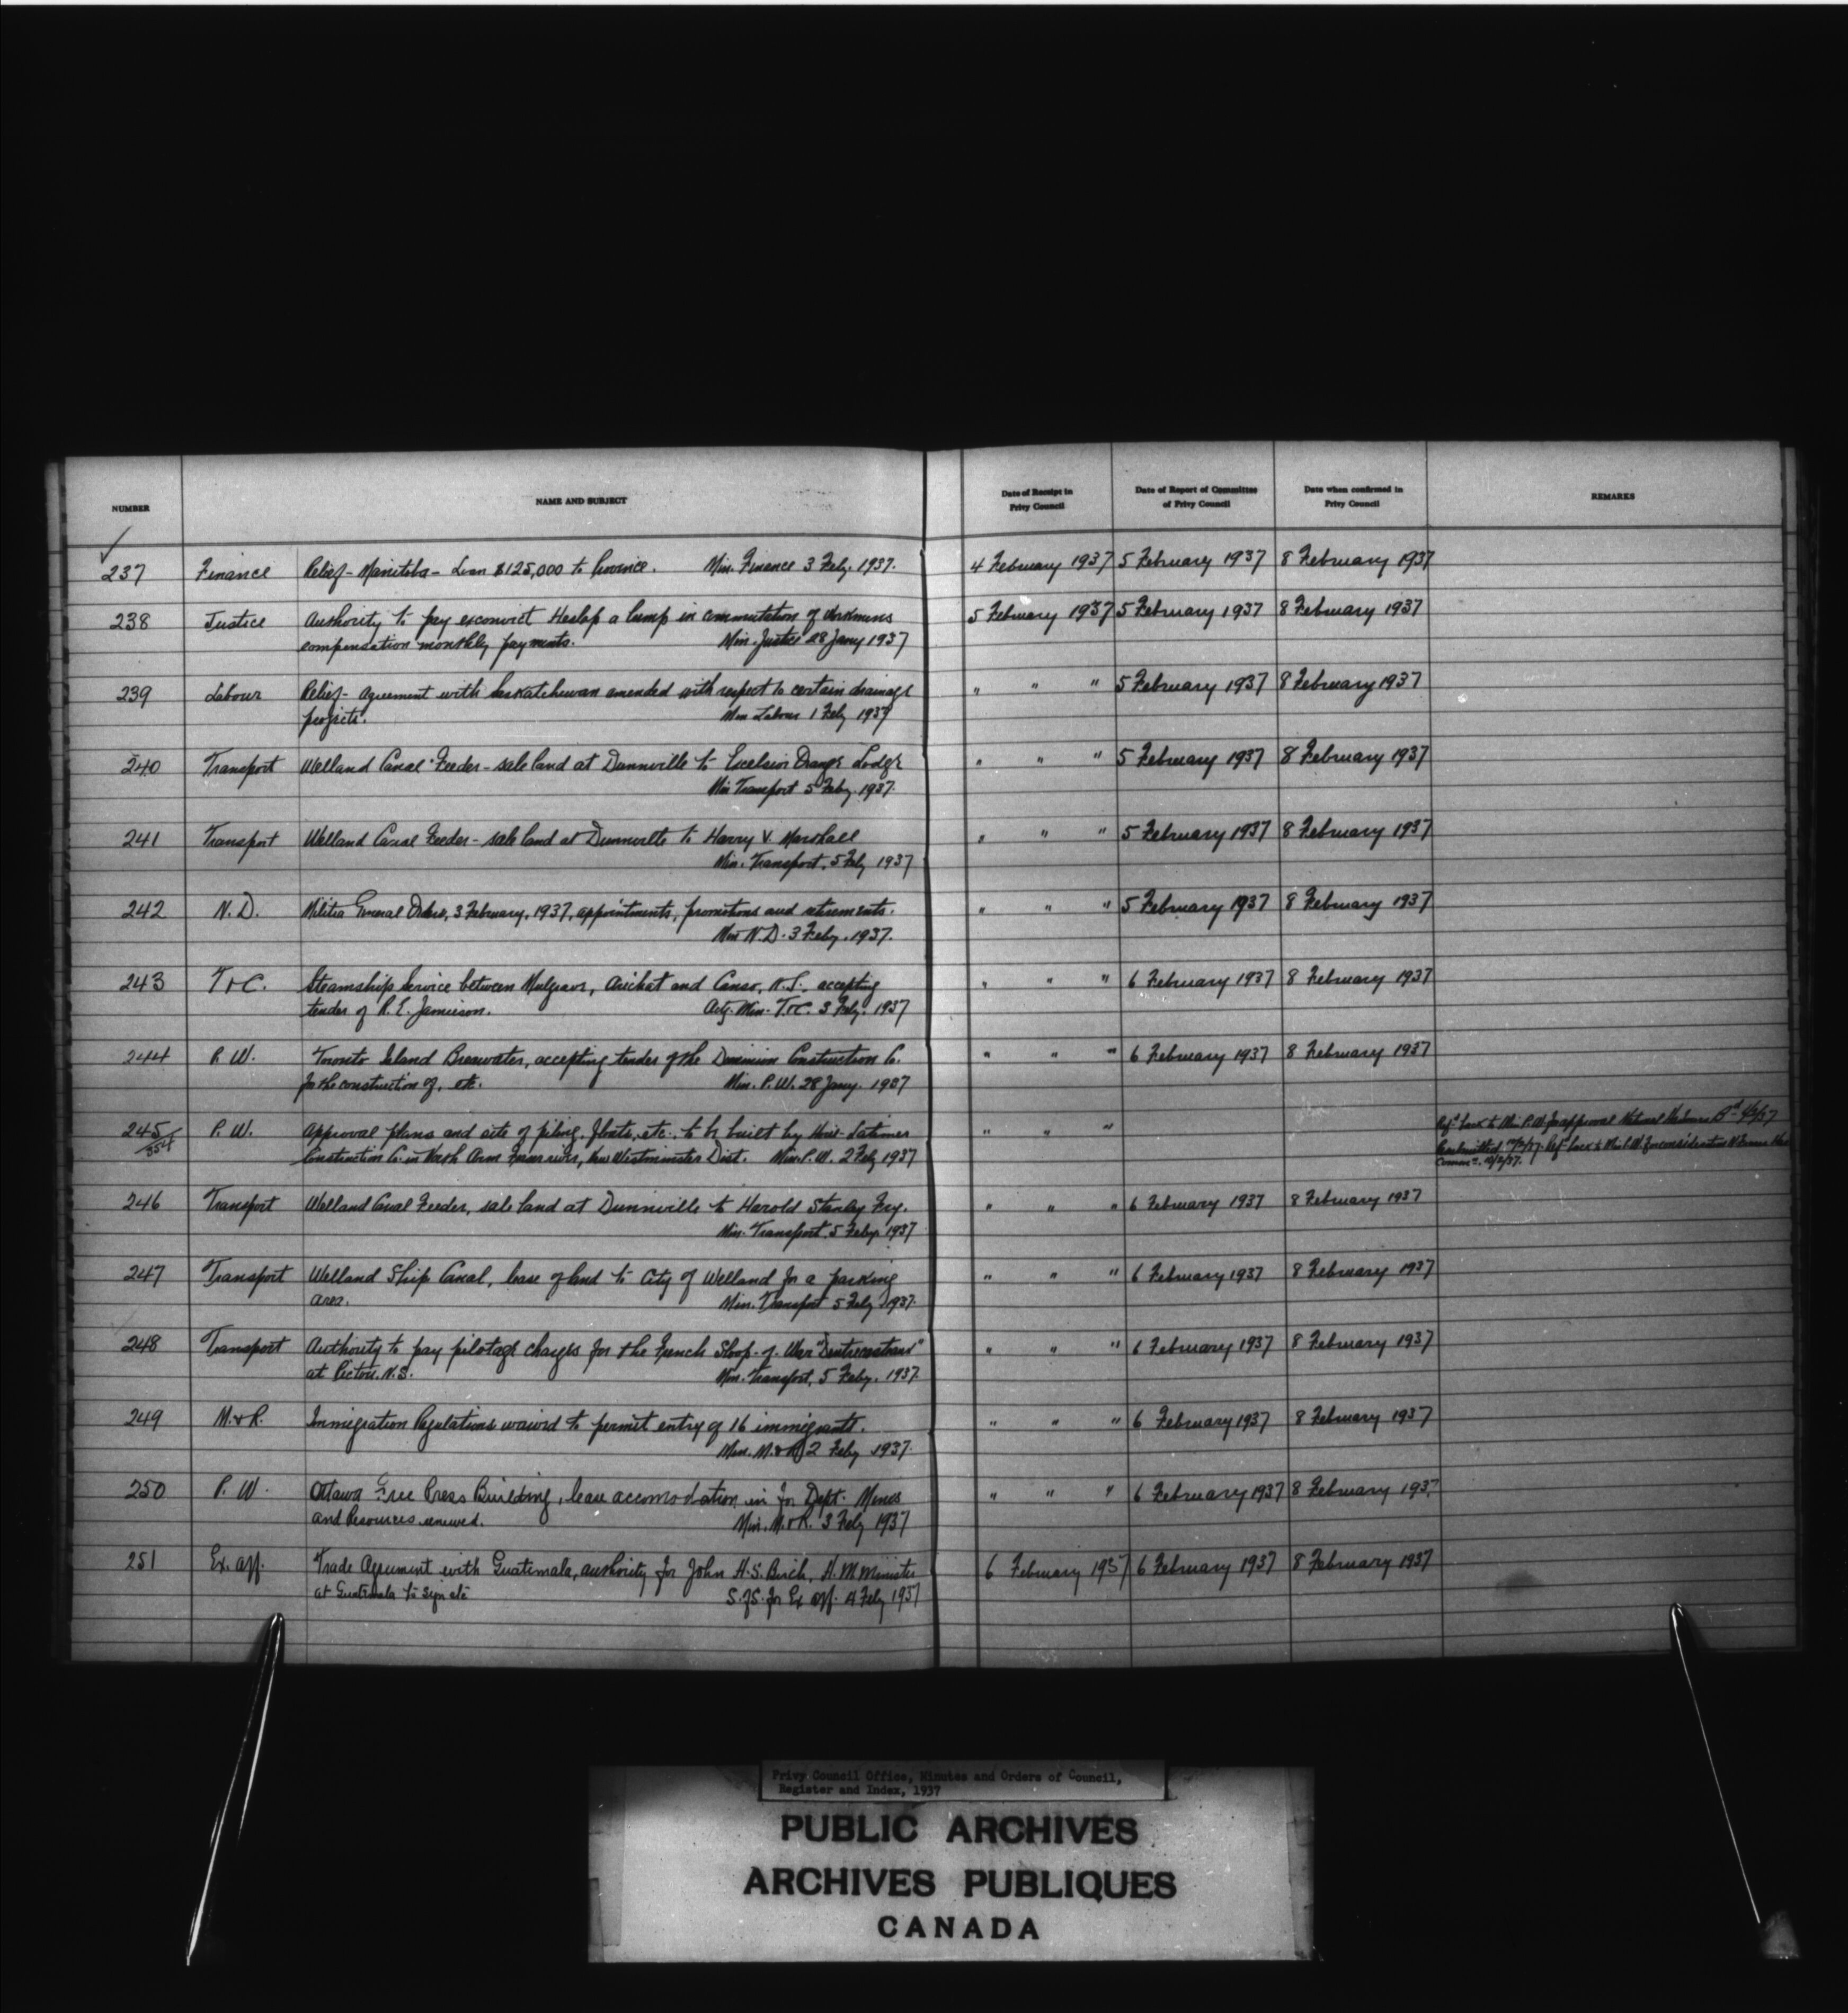 NUMBER NAME AND SUBJECT Date of Receipt in Privy Council Date of Report of Committee of Privy Council Date when confirmed in Privy Council REMARKS
237 Finance Relief - Manitoba - Loan $125,000 to Province. Min. Finance 3 Feby. 1937. 4 February 1937 5 February 1937 8 February 1937
238 Justice Authority to pay exconvict Heslop a lump in commutation of workmens 5 February 1937 5 February 1937 8 February 1937
compensation monthly payments. Min. Justice 28 Jany 1937
239 Labour Relief - agreement with Saskatchewan amended with respect to certain drainage " " " 5 February 1937 8 February 1937
projects. Min Labour 1 Feby 1937
240 Transport Welland Canal Feeder - sale land at Dunnville to Excelsior Orange Lodge " " " 5 February 1937 8 February 1937
Min Transport 5 Feby. 1937.
241 Transport Welland Canal Feeder - sale land at Dunnville to Harry V. Marshall " " " 5 February 1937 8 February 1937
Min. Transport. 5 Feby 1937
242 N. D. Militia General Orders, 3 February, 1937, appointments, promotions and retirements. " " " 5 February 1937 8 February 1937
Min N.D. 3 Feby. 1937.
243 T & C. Steamship Service between Mulgrave, Arichat and Canso, N.S., accepting " " " 6 February 1937 8 February 1937
tender of R. E. Jamieson. Actg. Min. T&C. 3 Feby. 1937
244 P. W. Toronto Island Breawater, accepting tender of the Dominion Construction Co. " " " 6 February 1937 8 February 1937
for the construction of, etc. Min. P.W. 28 Jany. 1937
245/354 P. W. Approval plans and site of piling, floats, etc. to be built by Latimer " " " Refd back to Min P.W. for approval National Harbours Bd 9/2/37
Construction Co. in North Arm Fraser river, New Westminster Dist. Min. P.W. 2 Feby 1937 Refd back to Min P.W. for consideration
246 Transport Welland Canal Feeder, sale land at Dunnville to Harold Stanley Fry. " " " 6 February 1937 8 February 1937
Min. Transport. 5 Feby 1937
247 Transport Welland Ship Canal, lease of land to City of Welland for a parking " " " 6 February 1937 8 February 1937
area. Min. Transport 5 Feby 1937.
248 Transport Authority to pay pilotage charges for the French Sloop-of-War "Dentrecasteaux" " " " 6 February 1937 8 February 1937
at Pictou. N.S. Min. Transport, 5 Feby. 1937.
249 M. & R. Immigration Regulations waived to permit entry of 16 immigrants. " " " 6 February 1937 8 February 1937
Min. M. & R. 2 Feby 1937.
250 P. W. Ottawa Free Press Building, lease accomodation in for Dept. Mines " " " 6 February 1937 8 February 1937
and Resources renewed. Min. M. & R. 3 Feby 1937
251 Ex. Aff. Trade Agreement with Guatemala, authority for John H. S. Birch, H. M. Minister 6 February 1937 6 February 1937 8 February 1937
at Guatemala to sign etc S. of S. for Ex Aff. 4 Feby 1937
Privy Council Office, Minutes and Orders of Council,
Register and Index, 1937
PUBLIC ARCHIVES
ARCHIVES PUBLIQUES
CANADA